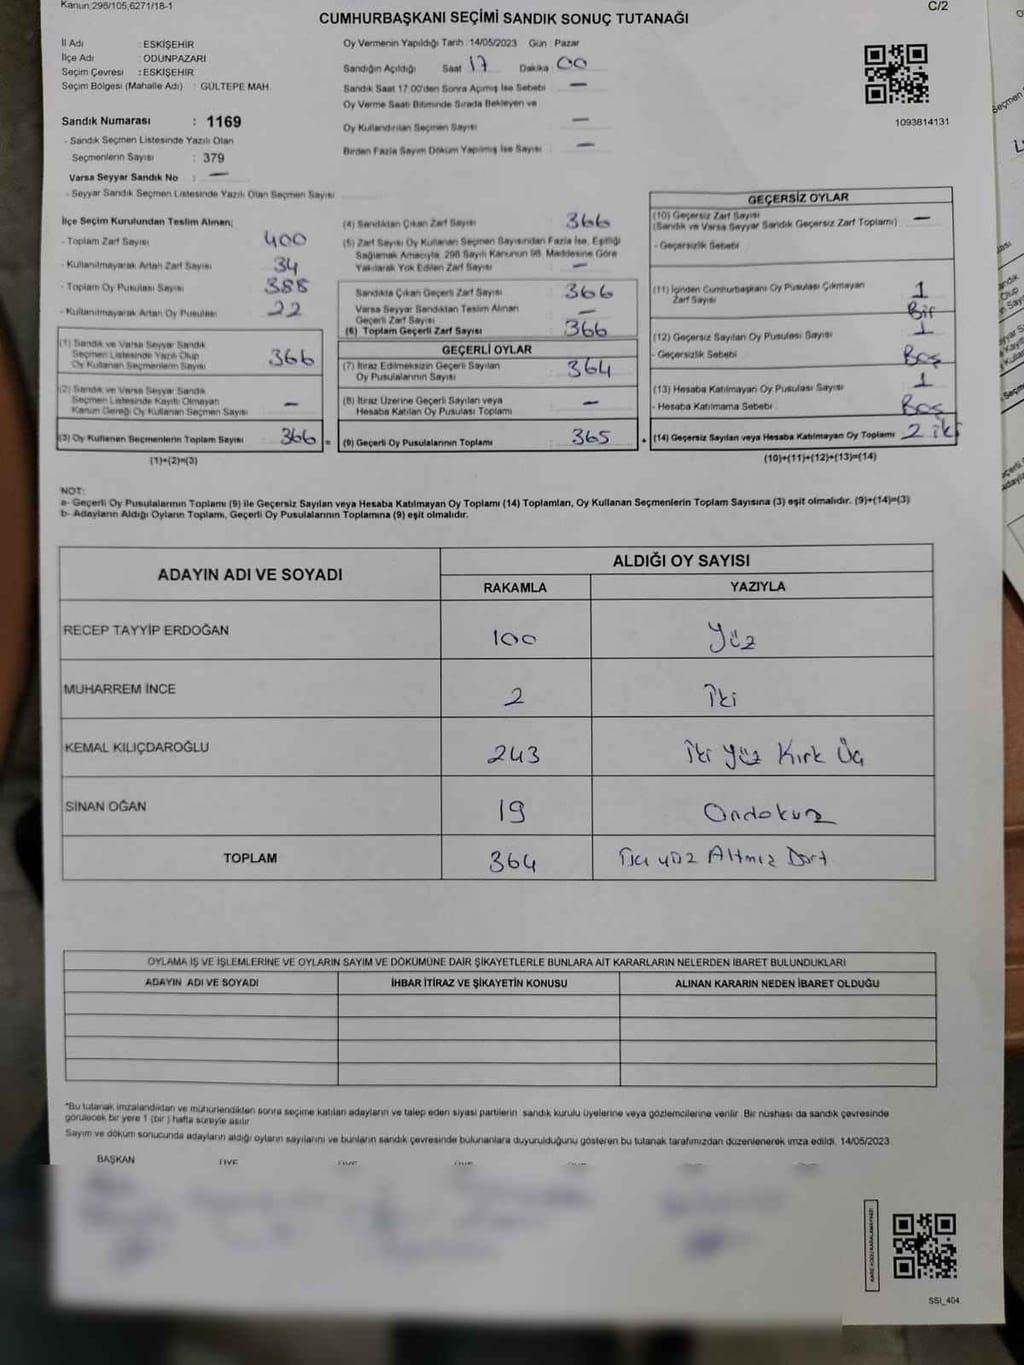 Kanun:298/105;6271/18-1
C/2
CUMHURBAŞKANI SEÇİMİ SANDIK SONUÇ TUTANAĞI
İl Adı : ESKİŞEHİR
İlçe Adı : ODUNPAZARI
Seçim Çevresi : ESKİŞEHİR
Seçim Bölgesi (Mahalle Adı) : GÜLTEPE MAH.
Sandık Numarası : 1169
- Sandık Seçmen Listesinde Yazılı Olan
Seçmenlerin Sayısı : 379
Varsa Seyyar Sandık No : —
- Seyyar Sandık Seçmen Listesinde Yazılı Olan Seçmen Sayısı
Oy Vermenin Yapıldığı Tarih :14/05/2023 Gün : Pazar
Sandığın Açıldığı Saat 17 Dakika 00
Sandık Saat 17.00'den Sonra Açmış İse Sebebi —
Oy Verme Saati Bitiminde Sırada Bekleyen ve
Oy Kullandırılan Seçmen Sayısı —
Birden Fazla Sayım Döküm Yapılmış İse Sayısı —
1093814131
İlçe Seçim Kurulundan Teslim Alınan;
- Toplam Zarf Sayısı 400
- Kullanılmayarak Artan Zarf Sayısı 34
- Toplam Oy Pusulası Sayısı 388
- Kullanılmayarak Artan Oy Pusulası 22
(1) Sandık ve Varsa Seyyar Sandık
Seçmen Listesinde Yazılı Olup
Oy Kullanan Seçmenlerin Sayısı 366
(2) Sandık ve Varsa Seyyar Sandık
Seçmen Listesinde Kayıtlı Olmayan
Kanun Gereği Oy Kullanan Seçmen Sayısı —
(3) Oy Kullanan Seçmenlerin Toplam Sayısı 366 =
(1)+(2)=(3)
(4) Sandıktan Çıkan Zarf Sayısı 366
(5) Zarf Sayısı Oy Kullanan Seçmen Sayısından Fazla İse, Eşitliği
Sağlamak Amacıyla, 298 Sayılı Kanunun 98. Maddesine Göre
Yakılarak Yok Edilen Zarf Sayısı —
Sandıkta Çıkan Geçerli Zarf Sayısı 366
Varsa Seyyar Sandıktan Teslim Alınan
Geçerli Zarf Sayısı —
(6) Toplam Geçerli Zarf Sayısı 366
GEÇERLİ OYLAR
(7) İtiraz Edilmeksizin Geçerli Sayılan
Oy Pusulalarının Sayısı 364
(8) İtiraz Üzerine Geçerli Sayılan veya
Hesaba Katılan Oy Pusulası Toplamı —
(9) Geçerli Oy Pusulalarının Toplamı 365 +
GEÇERSİZ OYLAR
(10) Geçersiz Zarf Sayısı
(Sandık ve Varsa Seyyar Sandık Geçersiz Zarf Toplamı) —
- Geçersizlik Sebebi
(11) İçinden Cumhurbaşkanı Oy Pusulası Çıkmayan
Zarf Sayısı 1
Bir
(12) Geçersiz Sayılan Oy Pusulası Sayısı 1
- Geçersizlik Sebebi Boş
(13) Hesaba Katılmayan Oy Pusulası Sayısı 1
- Hesaba Katılmama Sebebi Boş
(14) Geçersiz Sayılan veya Hesaba Katılmayan Oy Toplamı 2 iki
(10)+(11)+(12)+(13)=(14)
NOT:
a- Geçerli Oy Pusulalarının Toplamı (9) ile Geçersiz Sayılan veya Hesaba Katılmayan Oy Toplamı (14) Toplamları, Oy Kullanan Seçmenlerin Toplam Sayısına (3) eşit olmalıdır. (9)+(14)=(3)
b- Adayların Aldığı Oyların Toplamı, Geçerli Oy Pusulalarının Toplamına (9) eşit olmalıdır.
ADAYIN ADI VE SOYADI ALDIĞI OY SAYISI
RAKAMLA YAZIYLA
RECEP TAYYİP ERDOĞAN 100 Yüz
MUHARREM İNCE 2 İki
KEMAL KILIÇDAROĞLU 243 İki yüz Kırk Üç
SİNAN OĞAN 19 Ondokuz
TOPLAM 364 yüz Altmız Dört
OYLAMA İŞ VE İŞLEMLERİNE VE OYLARIN SAYIM VE DÖKÜMÜNE DAİR ŞİKAYETLERLE BUNLARA AİT KARARLARIN NELERDEN İBARET BULUNDUKLARI
ADAYIN ADI VE SOYADI İHBAR İTİRAZ VE ŞİKAYETİN KONUSU ALINAN KARARIN NEDEN İBARET OLDUĞU
*Bu tutanak imzalandıktan ve mühürlendikten sonra seçime katılan adayların ve talep eden siyasi partilerin sandık kurulu üyelerine veya gözlemcilerine verilir. Bir nüshası da sandık çevresinde
görülecek bir yere 1 (bir ) hafta süreyle asılır
Sayım ve döküm sonucunda adayların aldığı oyların sayılarını ve bunların sandık çevresinde bulunanlara duyurulduğunu gösteren bu tutanak tarafımızdan düzenlenerek imza edildi. 14/05/2023
BAŞKAN ÜYE ÜYE ÜYE
KARE KODU KARALAMAYINIZ!
SSI_404